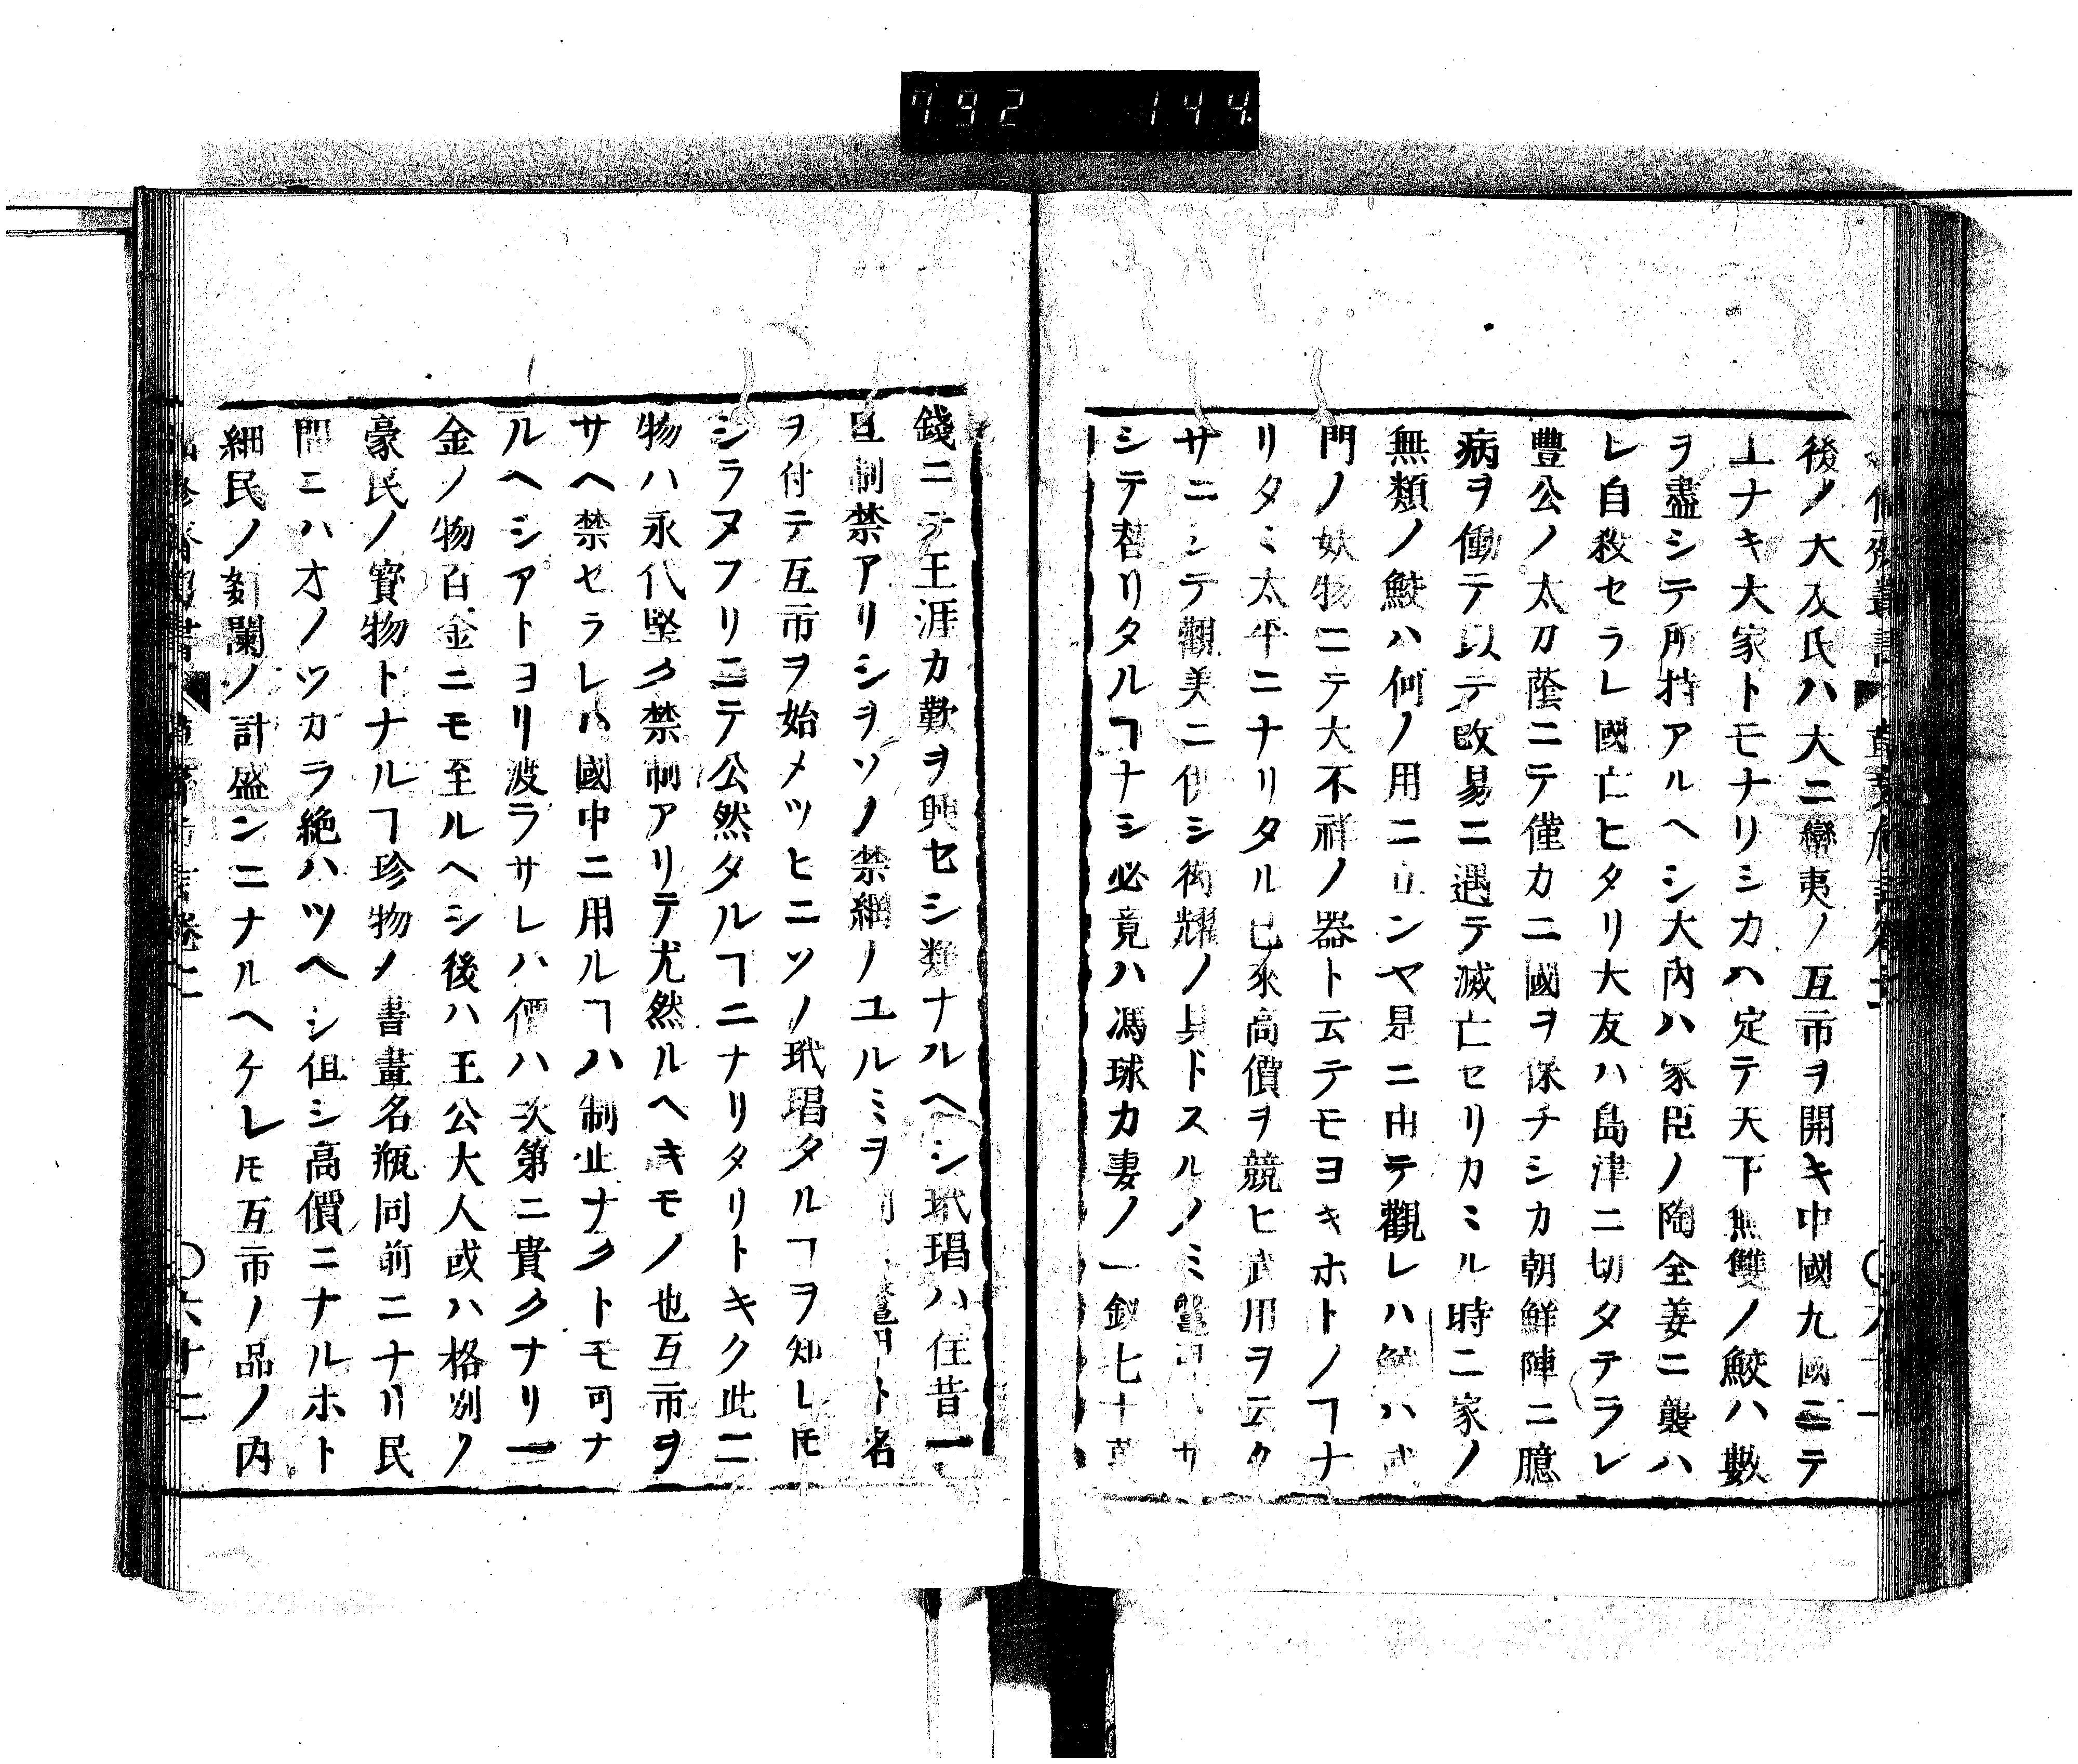 792 144
後ノ大友氏ハ大ニ蠻夷ノ互市ヲ開キ中國九國ニテ
上ナキ大家トモナリシカハ定テ天下無雙ノ鮫ハ數
ヲ盡シテ所持アルヘシ大内ハ家臣ノ陶全姜ニ襲ハ
レ自殺セラレ國亡ヒタリ大友ハ島津ニ切タテラレ
豐公ノ太刀蔭ニテ僅カニ國ヲ保チシカ朝鮮陣ニ臆
病ヲ働テ以テ改易ニ遇テ滅亡セリカミル時ニ家ノ
無類ノ鮫ハ何ノ用ニ立ンヤ是ニ由テ觀レハ鮫ハ武
門ノ妖物ニテ大不祥ノ器ト云テモヨキホトノヿナ
リタミ太平ニナリタル已來高價ヲ競ヒ武用ヲ云ク
サニシテ觀美ニ供シ衒耀ノ具ドスルノミ鼈甲 カ
シテ替リタルヿナシ必竟ハ馮球カ妻ノ一釵七十萬
錢ニテ王涯カ歎ヲ興セシ類ナルヘシ玳瑁ハ往昔一
旦制禁アリシヲソノ禁網ノユルミヲ 鼈甲ト名
ヲ付テ互市ヲ始メツヒニソノ玳瑁タルヿヲ知レ𪜈
シラヌフリニテ公然タルヿニナリタリトキク此二
物ハ永代堅ク禁制アリテ尤然ルヘキモノ也互市ヲ
サヘ禁セラレハ國中ニ用ルヿハ制止ナクトモ可ナ
ルヘシアトヨリ渡ラサレハ價ハ次第ニ貴クナリ一
金ノ物百金ニモ至ルヘシ後ハ王公大人或ハ格別ノ
豪民ノ寳物トナルヿ珍物ノ書畫名瓶同前ニナリ民
間ニハオノツカラ絶ハツヘシ伹シ高價ニナルホト
細民ノ ノ計盛ンニナルヘケレ𪜈互市ノ品ノ内
〇六十二